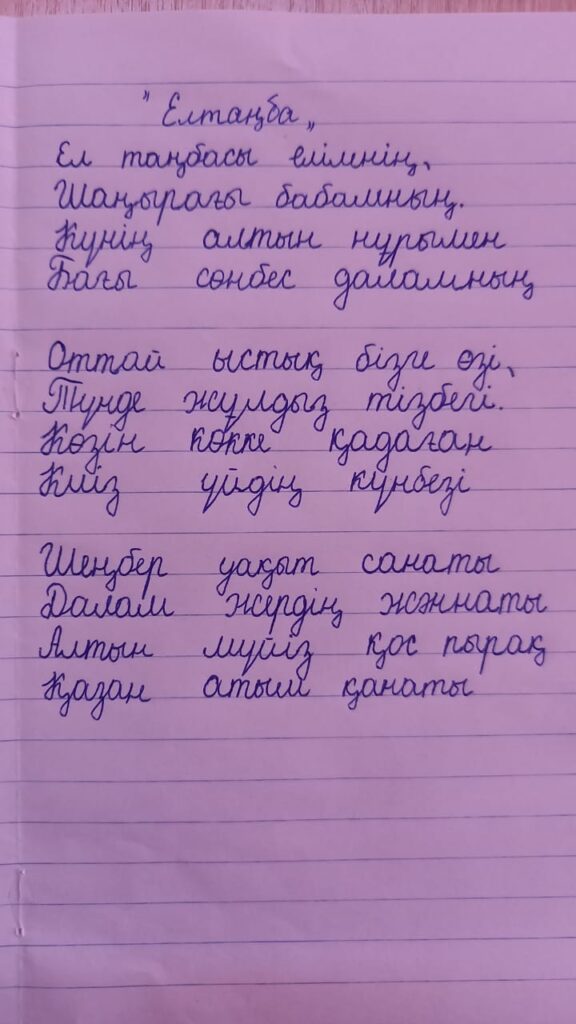 "Елтаңба"
Ел таңбасы елімнің,
Шаңырағы бабамның.
Күнің алтын нұрымен
Бағы сөнбес даламның
Оттай ыстық бізге өзі,
Түнде жұлдыз тізбегі.
Көзін көкке қадаған
Киіз үйдің күнбезі
Шеңбер уақыт санаты
Далам жердің жәннаты
Алтын мүйіз қос пырақ
Қазан атым қанаты